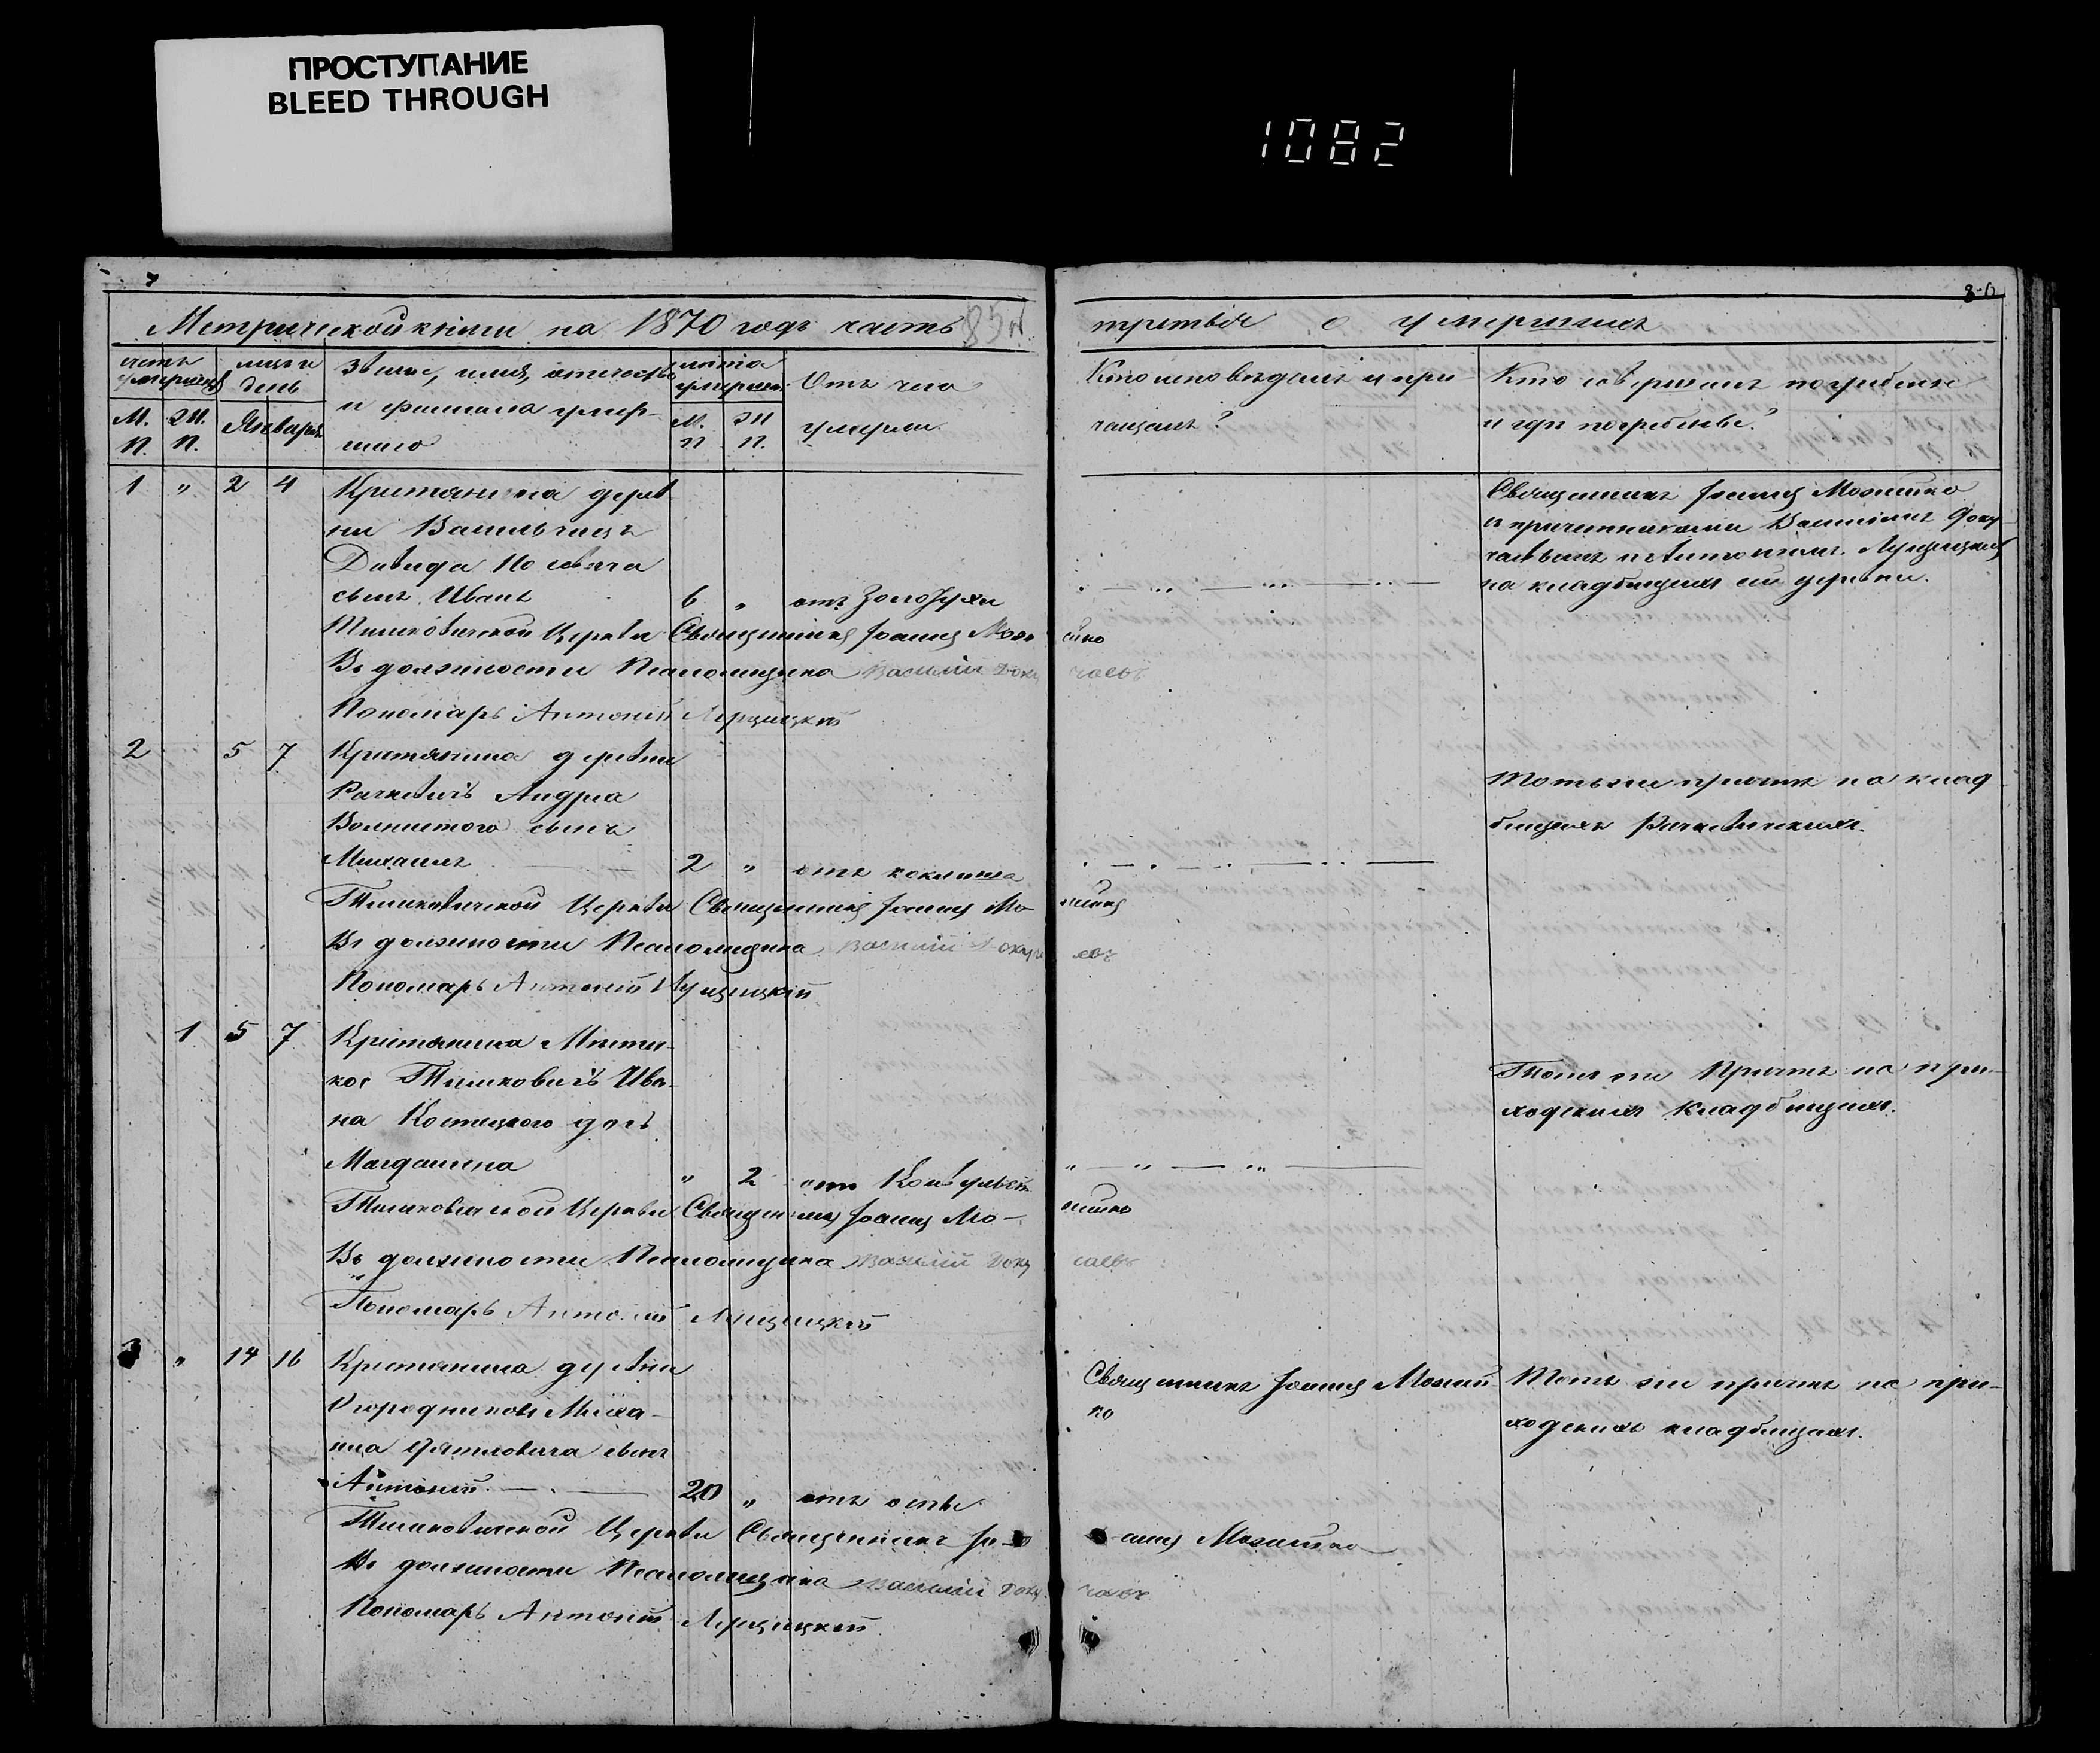 ПРОСТУПАНИЕ
BLEED THROUGH
1082
Метрической книги на 1870 годъ часть
третья о умершихъ
Званіе, имя, отчество
и фамилія умер-
шаго
день
Январь
лѣта
М. П.
Отъ чего
Кто исповѣдалъ и при-
чащалъ?
Кто совершалъ погребеніе
и гдѣ погребены?
1 " 2 4 Крестьянина дерев
ни Васильчицъ
Давида
сынъ Иванъ 6 " отъ Золотухи
Священникъ Іоаннъ Можейко
съ причетниками
и Антоніемъ Лущицкимъ
на кладбищахъ сей деревни.
Тишковичской Церкви Священникъ Іоаннъ Можейко
Въ должности Псаломщика Василій Докучаевъ
Пономарь Антоній Лущицкій
2 5 7 Крестьянина деревни
Рачкевичъ Андрея
сынъ
Михаилъ 2 " отъ коклюша
Тотъ же причтъ на клад
бищахъ Рачкевичскихъ.
Тишковичской Церкви Священникъ Іоаннъ Можейко
Въ должности Псаломщика Василій Докучаевъ
Пономарь Антоній Лущицкій
1 5 7 Крестьянина Мѣстеч-
ка Тишковичъ Ива-
на Костецкого дочь
Магдалина " 2 отъ
Тотъ же Причтъ на при-
ходскихъ кладбищахъ.
Тишковичской Церкви Священникъ Іоаннъ Можейко
Въ должности Псаломщика Василій Докучаевъ
Пономарь Антоній Лущицкій
3 " 14 16 Крестьянина деревни
Огородниковъ Миха-
ила сынъ
Антоній 20 " отъ оспы
Священникъ Іоаннъ Можей-
ко
Тотъ же причтъ на при-
ходскихъ кладбищахъ.
Тишковичской Церкви Священникъ Іоаннъ Можейко
Въ должности Псаломщика Василій Докучаевъ
Пономарь Антоній Лущицкій